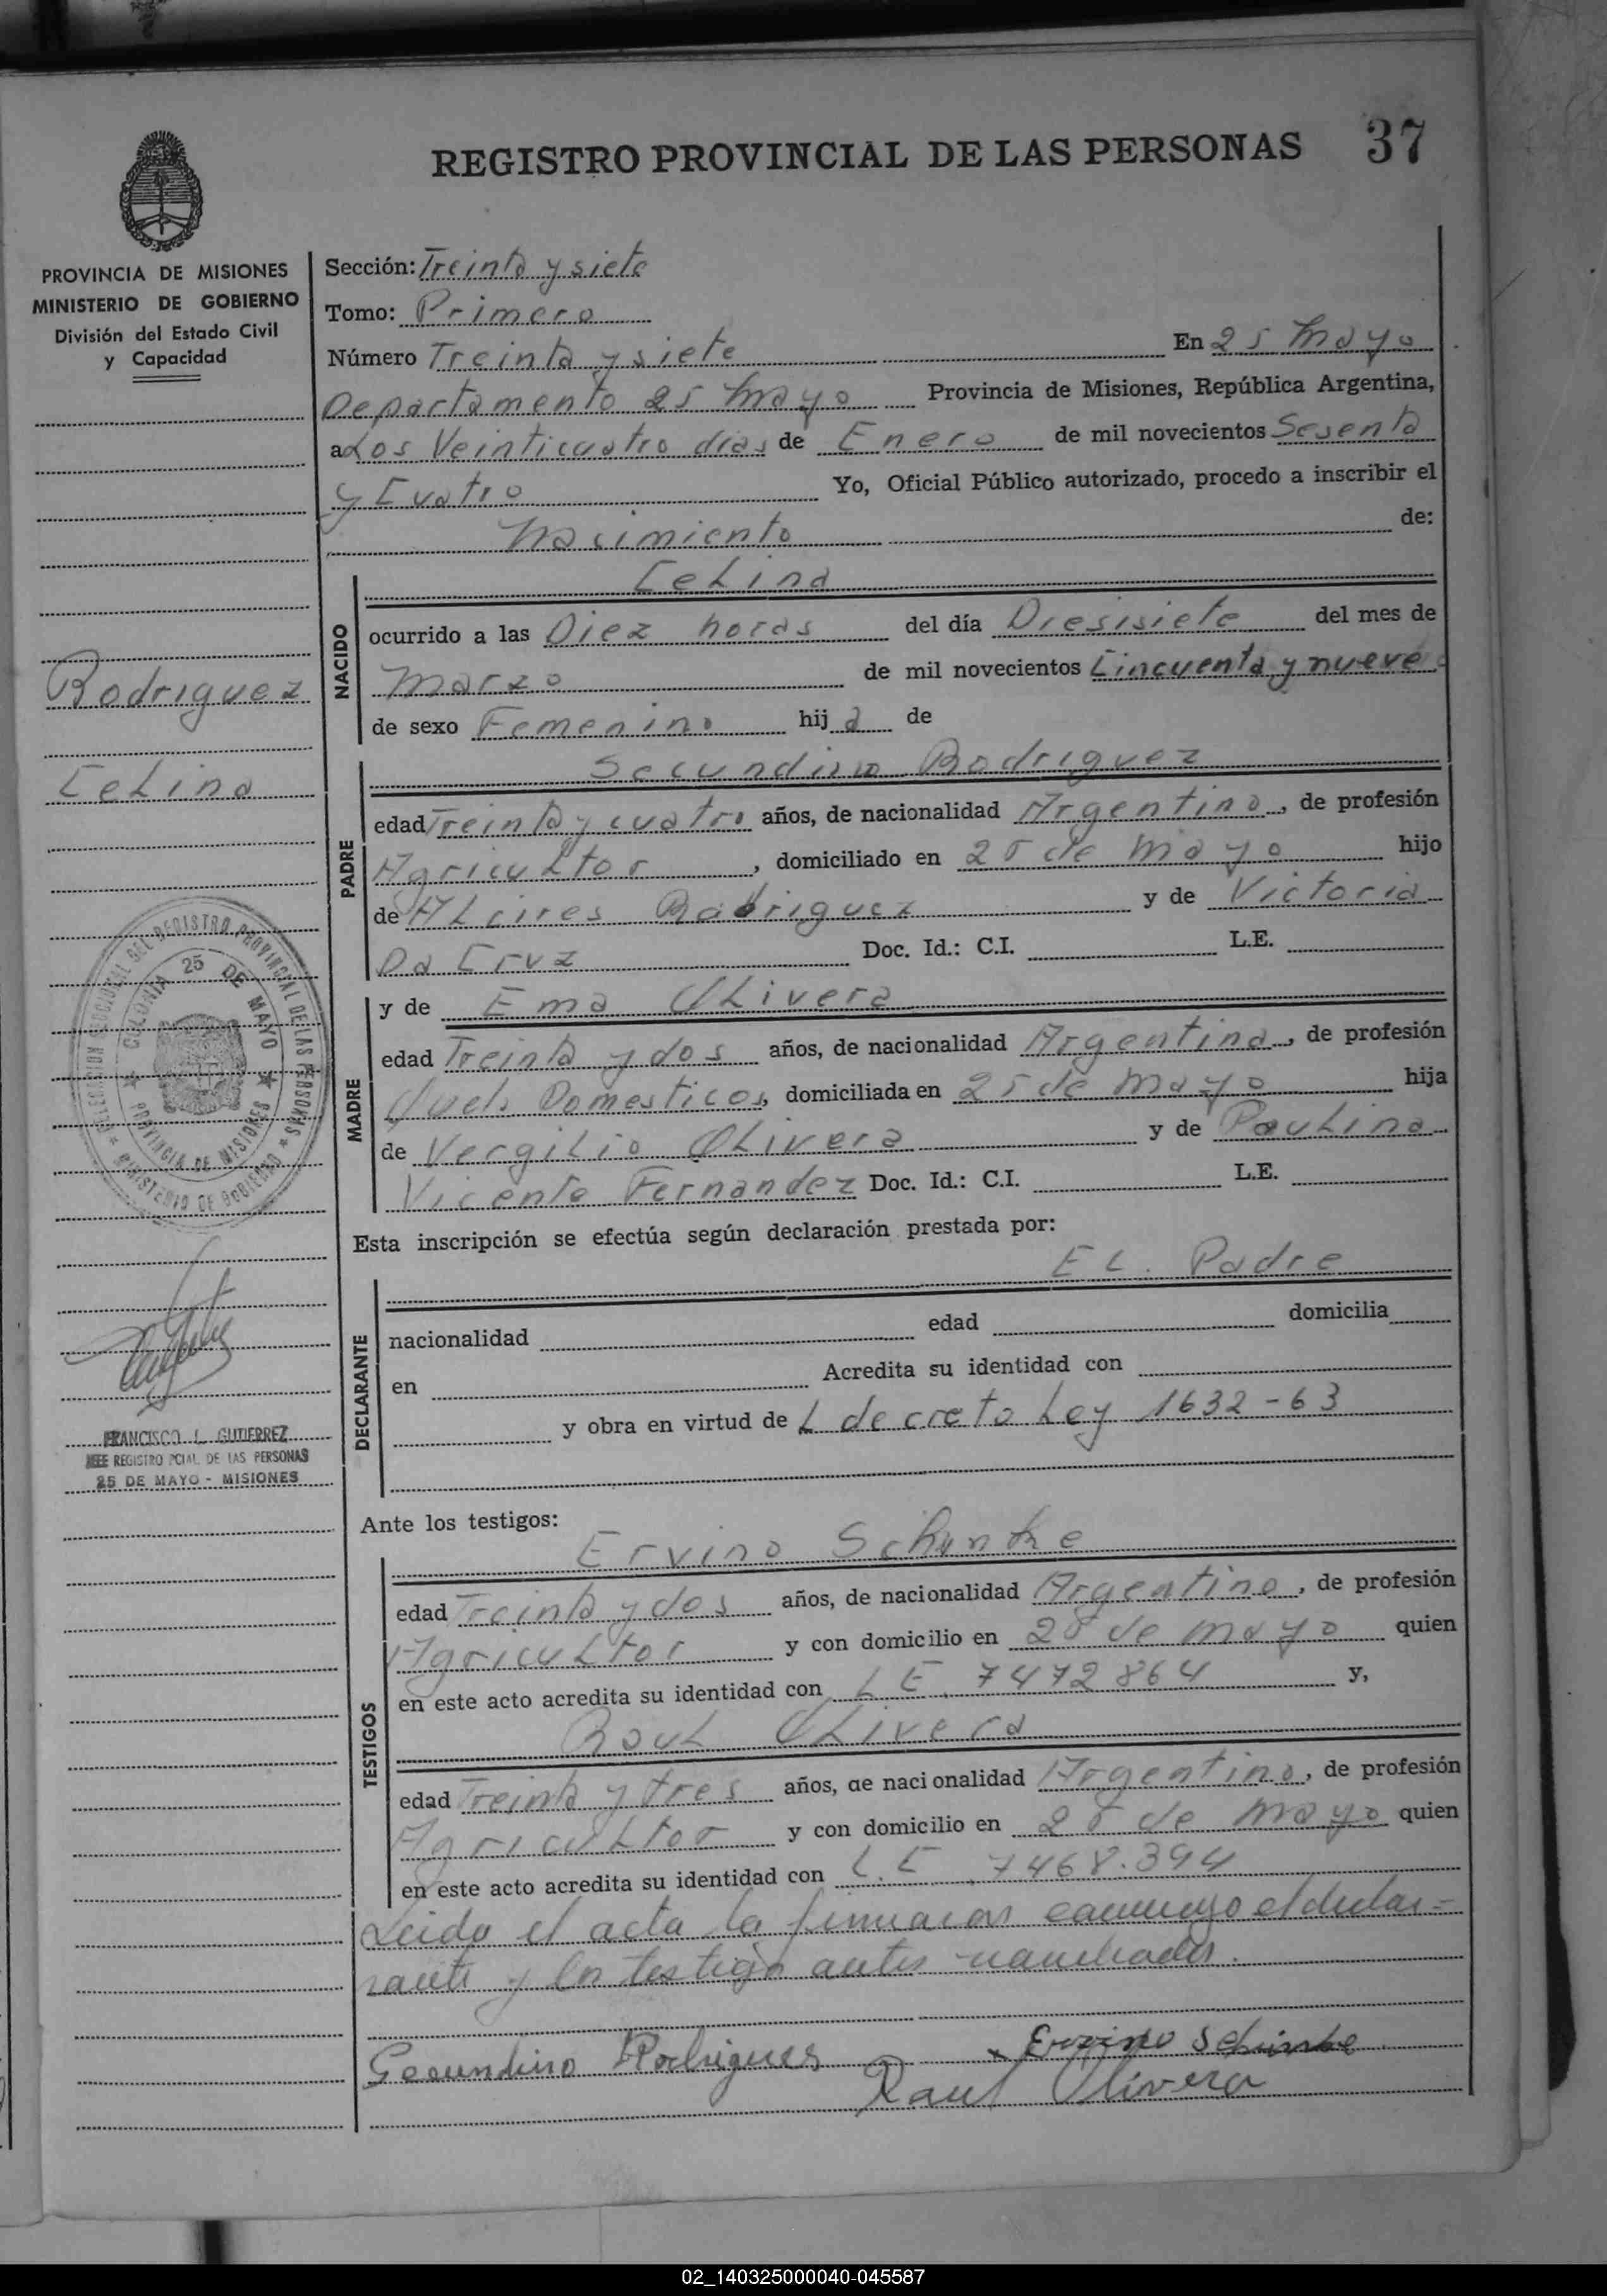 REGISTRO PROVINCIAL DE LAS PERSONAS 37
PROVINCIA DE MISIONES
MINISTERIO DE GOBIERNO
División del Estado Civil
y Capacidad
Rodriguez
CeLina
DELEGACION SOCIAL DEL REGISTRO PROVINCIAL DE LAS PERSONAS ★ MINISTERIO DE GOBIERNO ★
COLONIA 25 DE MAYO ★ PROVINCIA DE MISIONES ★
FRANCISCO L. GUTIERREZ
JEFE REGISTRO PCIAL. DE LAS PERSONAS
25 DE MAYO - MISIONES
Sección: Treinta y siete
Tomo: Primero
Número Treinta y siete En 25 Mayo
Departamento 25 Mayo Provincia de Misiones, República Argentina,
a Los Veinticuatro dias de Enero de mil novecientos Sesenta
y Cuatro Yo, Oficial Público autorizado, procedo a inscribir el
Nacimiento de:
NACIDO
CeLina
ocurrido a las Diez horas del día Diesisiete del mes de
Marzo de mil novecientos Cincuenta y nueve
de sexo Femenino hija de
PADRE
Secundino Rodriguez
edad Treinta y cuatro años, de nacionalidad Argentino, de profesión
AgricuLtor, domiciliado en 25 de Mayo hijo
de ALcires Rodriguez y de Victoria
Da Cruz Doc. Id.: C.I. L.E.
MADRE
y de Ema OLivera
edad Treinta y dos años, de nacionalidad Argentina, de profesión
Domesticos, domiciliada en 25 de Mayo hija
de VergiLio OLivera y de PauLina
Vicenta Fernandez Doc. Id.: C.I. L.E.
Esta inscripción se efectúa según declaración prestada por:
DECLARANTE
EL. Padre
nacionalidad edad domicilia
en Acredita su identidad con
y obra en virtud de L decreto Ley 1632-63
Ante los testigos:
TESTIGOS
Ervino Schinke
edad Treinta y dos años, de nacionalidad Argentino, de profesión
AgricuLtor y con domicilio en 25 de Mayo quien
en este acto acredita su identidad con L E. 7472864 y,
RauL OLivera
edad Treinta y tres años, de nacionalidad Argentino, de profesión
AgricuLtor y con domicilio en 25 de Mayo quien
en este acto acredita su identidad con L.E. 7468.394
Leida el acta la firmaron conmigo el decla=
rante y los testigos antes nombrados.
Secundino Rodrigues Ervino Schinke
Raul Olivera
02_140325000040-045587